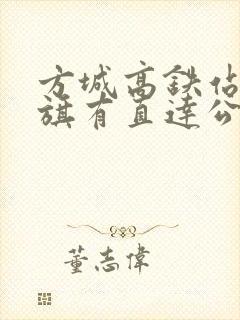 方城高鉄佔
旗有直達公
董志偉